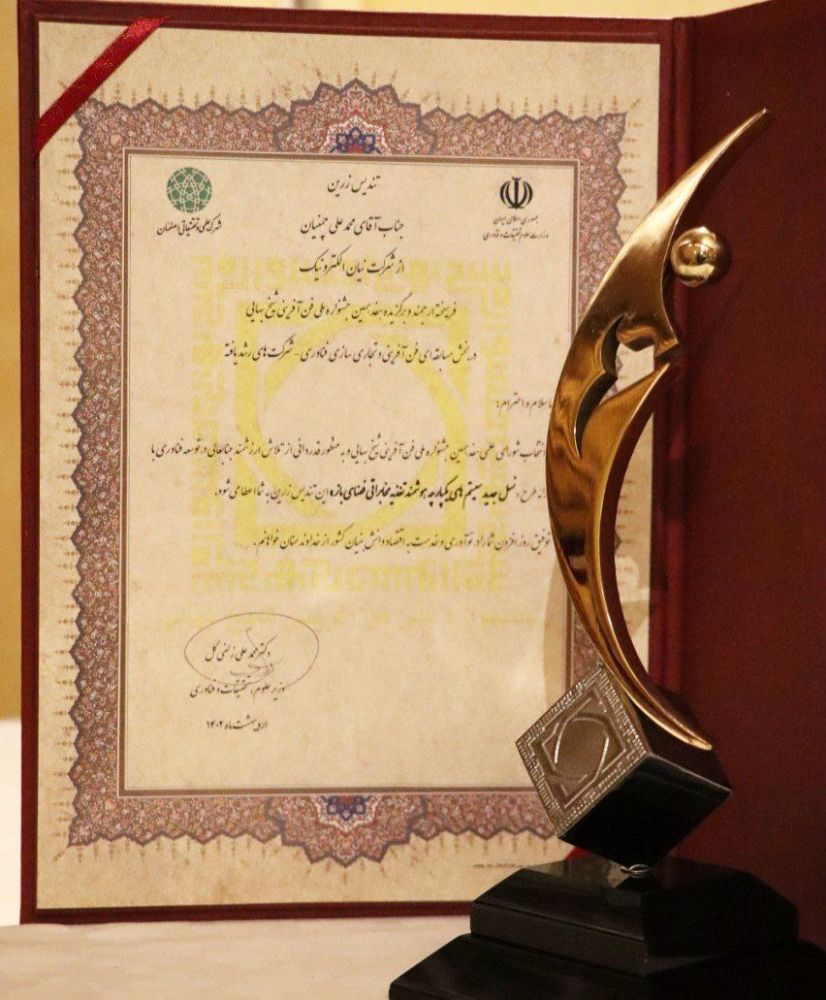 تندیس زرین
جمهوری اسلامی ایران
وزارت علوم، تحقیقات و فناوری
شهرک علمی و تحقیقاتی اصفهان
جناب آقای محمد علی چمنیان
از شرکت نیان الکترونیک
فرهیخته ارجمند و برگزیده هفدهمین جشنواره ملی فن آفرینی شیخ بهایی
در بخش مسابقه ای فن آفرینی و تجاری سازی فناوری - شرکت های رشد یافته
با سلام و احترام؛
انتخاب شورای علمی هفدهمین جشنواره ملی فن آفرینی شیخ بهایی و به منظور قدردانی از تلاش ارزشمند جنابعالی در توسعه فناوری با
طرح نسل جدید سیستم های یکپارچه هوشمند تغذیه مخابراتی فضای باز، این تندیس زرین به شما اعطا می شود.
توفیق روز افزون شما را در نوآوری و خدمت به اقتصاد دانش بنیان کشور از خداوند منان خواهانم.
دکتر محمد علی زلفی گل
وزیر علوم، تحقیقات و فناوری
اردیبهشت ماه ۱۴۰۲